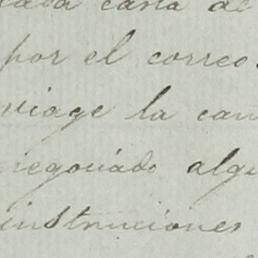 carta de
por el correo.
viage la can
negociado algu
instruciones